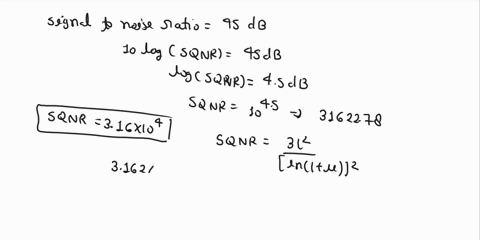 signal to noise ratio = 45 dB
10 log (SQNR) = 45 dB
log (SQNR) = 4.5 dB
SQNR = 10^4.5 → 3162278
SQNR = 3.16×10^4
SQNR = 3L^2 / [ln(1+μ)]^2
3.162